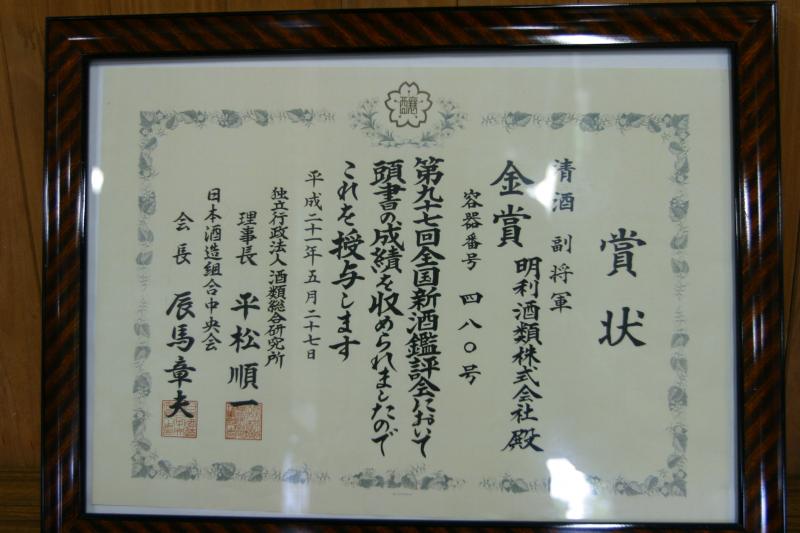 醸
賞状
清酒 副将軍
明利酒類株式会社 殿
金賞
容器番号 四八〇号
第九十七回全国新酒鑑評会において
頭書の成績を収められましたので
これを授与します
平成二十一年五月二十七日
独立行政法人 酒類総合研究所
理事長 平松順一
日本酒造組合中央会
会長 辰馬章夫